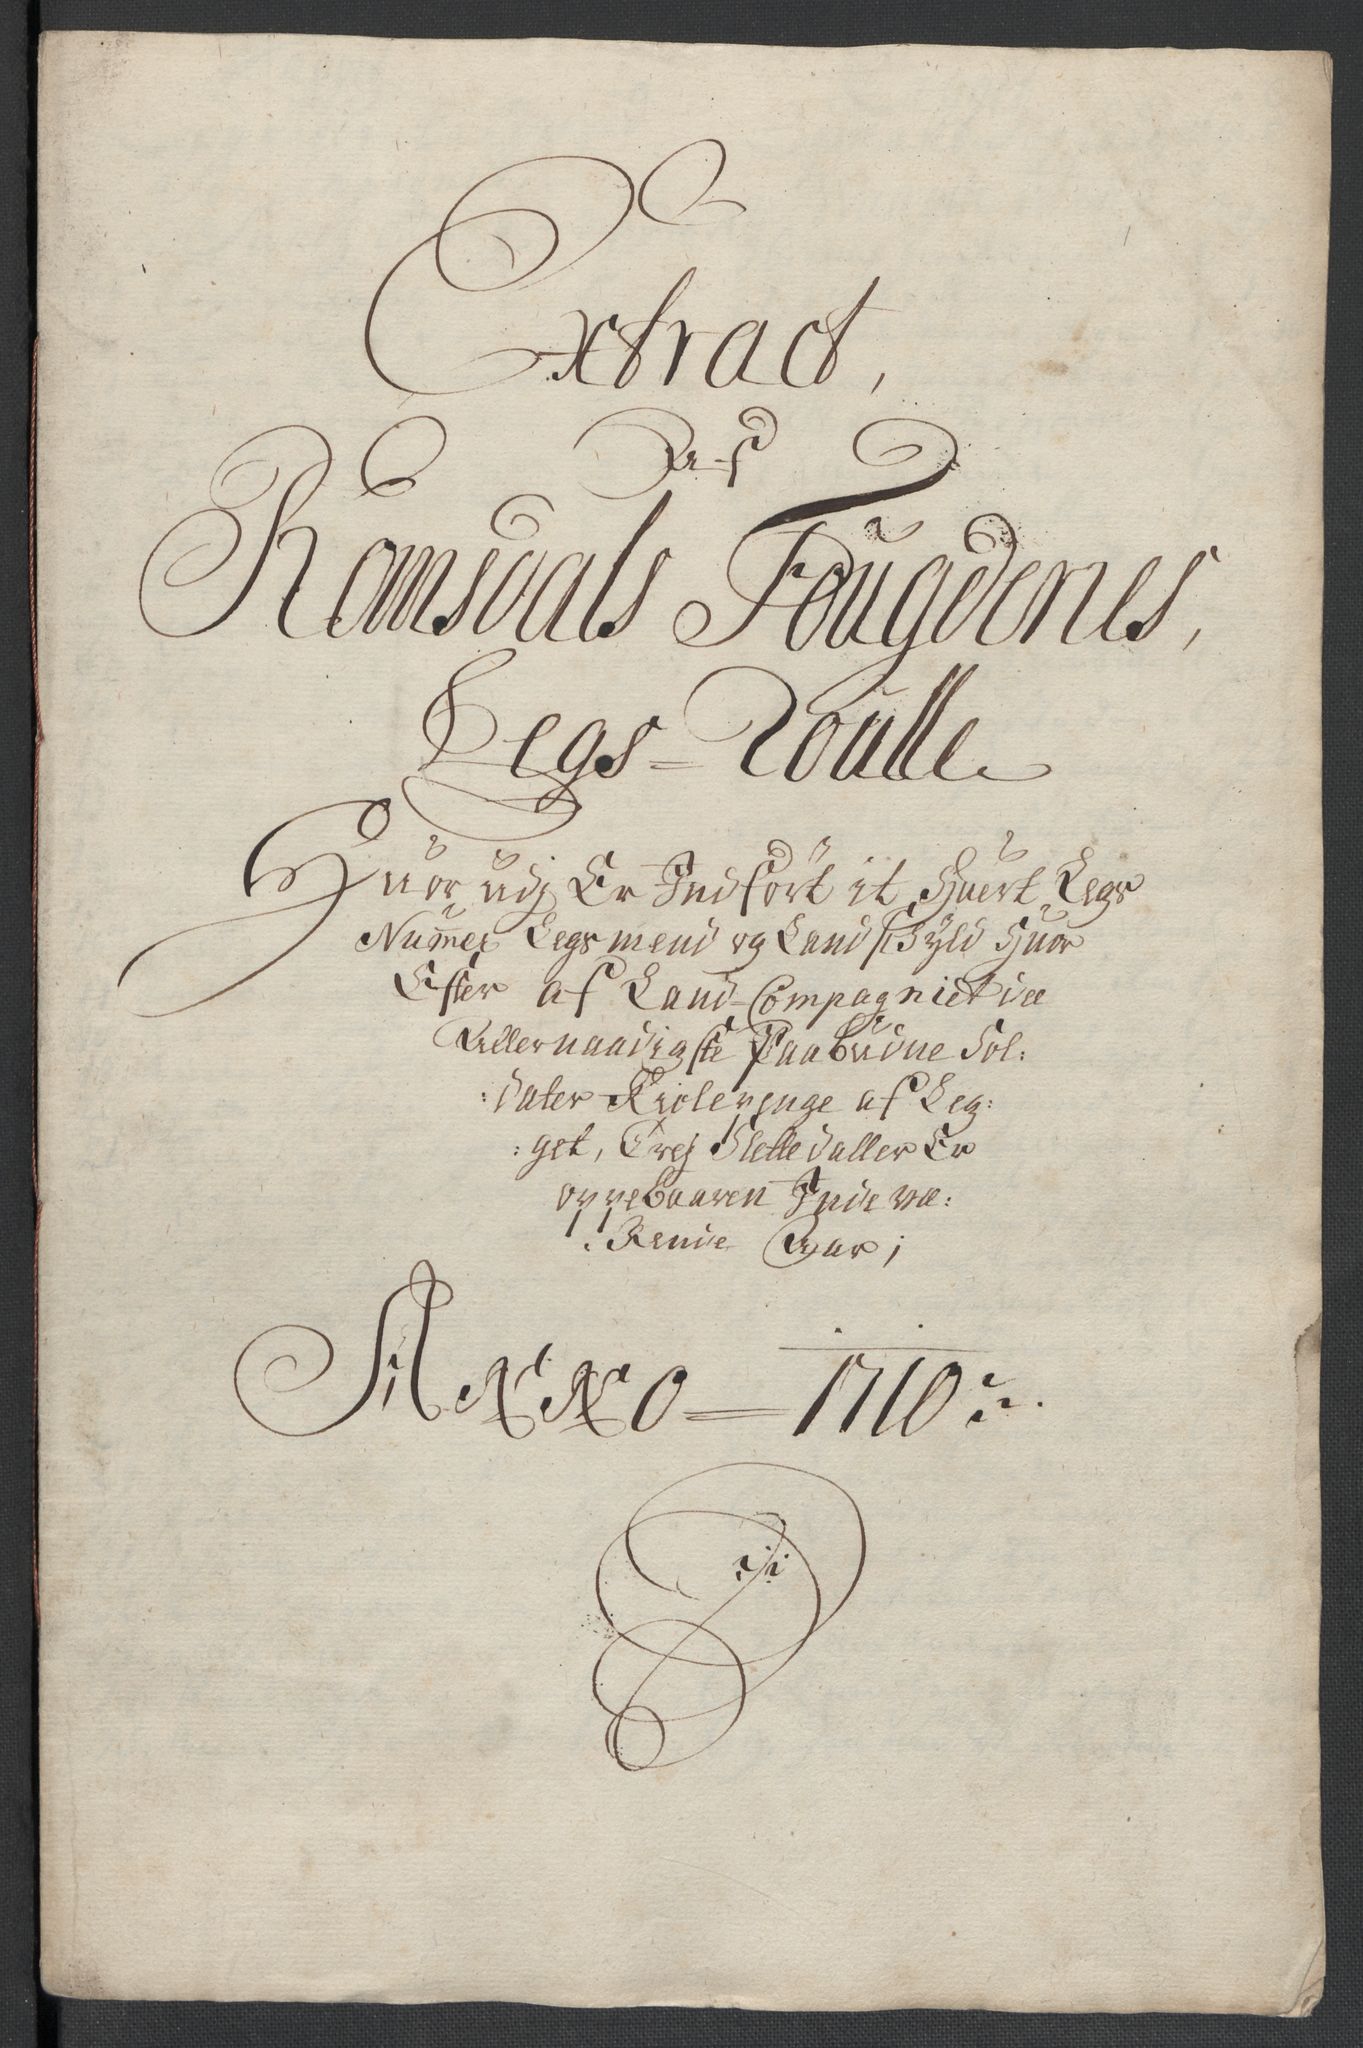 Extract,
Af
Romsdals Fougderies,
Legs-Roulle
Huor udj Er Indført it Huert Legs
Nummer Legsmend og Landschyld Huor
Efter af Land-Compagniet de
Allernaadigste Paabudne Sol:
:dater Kiolepenge af Leg:
:get, Trej Slettedaller Er
oppebaaren Inde væ:
:Rende Aar;
Anno — 1710